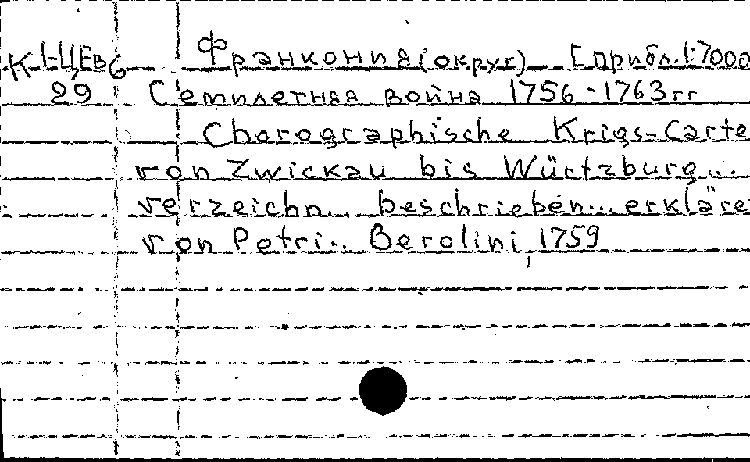 К 1-ЦЕв 6 Франкония (округ) [прибл. 1:7000
29 Семилетняя война 1756-1763 гг
Chorographische Krigs-Carte
von Zwickau bis Würtzburg...
verzeichn... beschrieben... erkläre
von Petri... Berolini, 1759